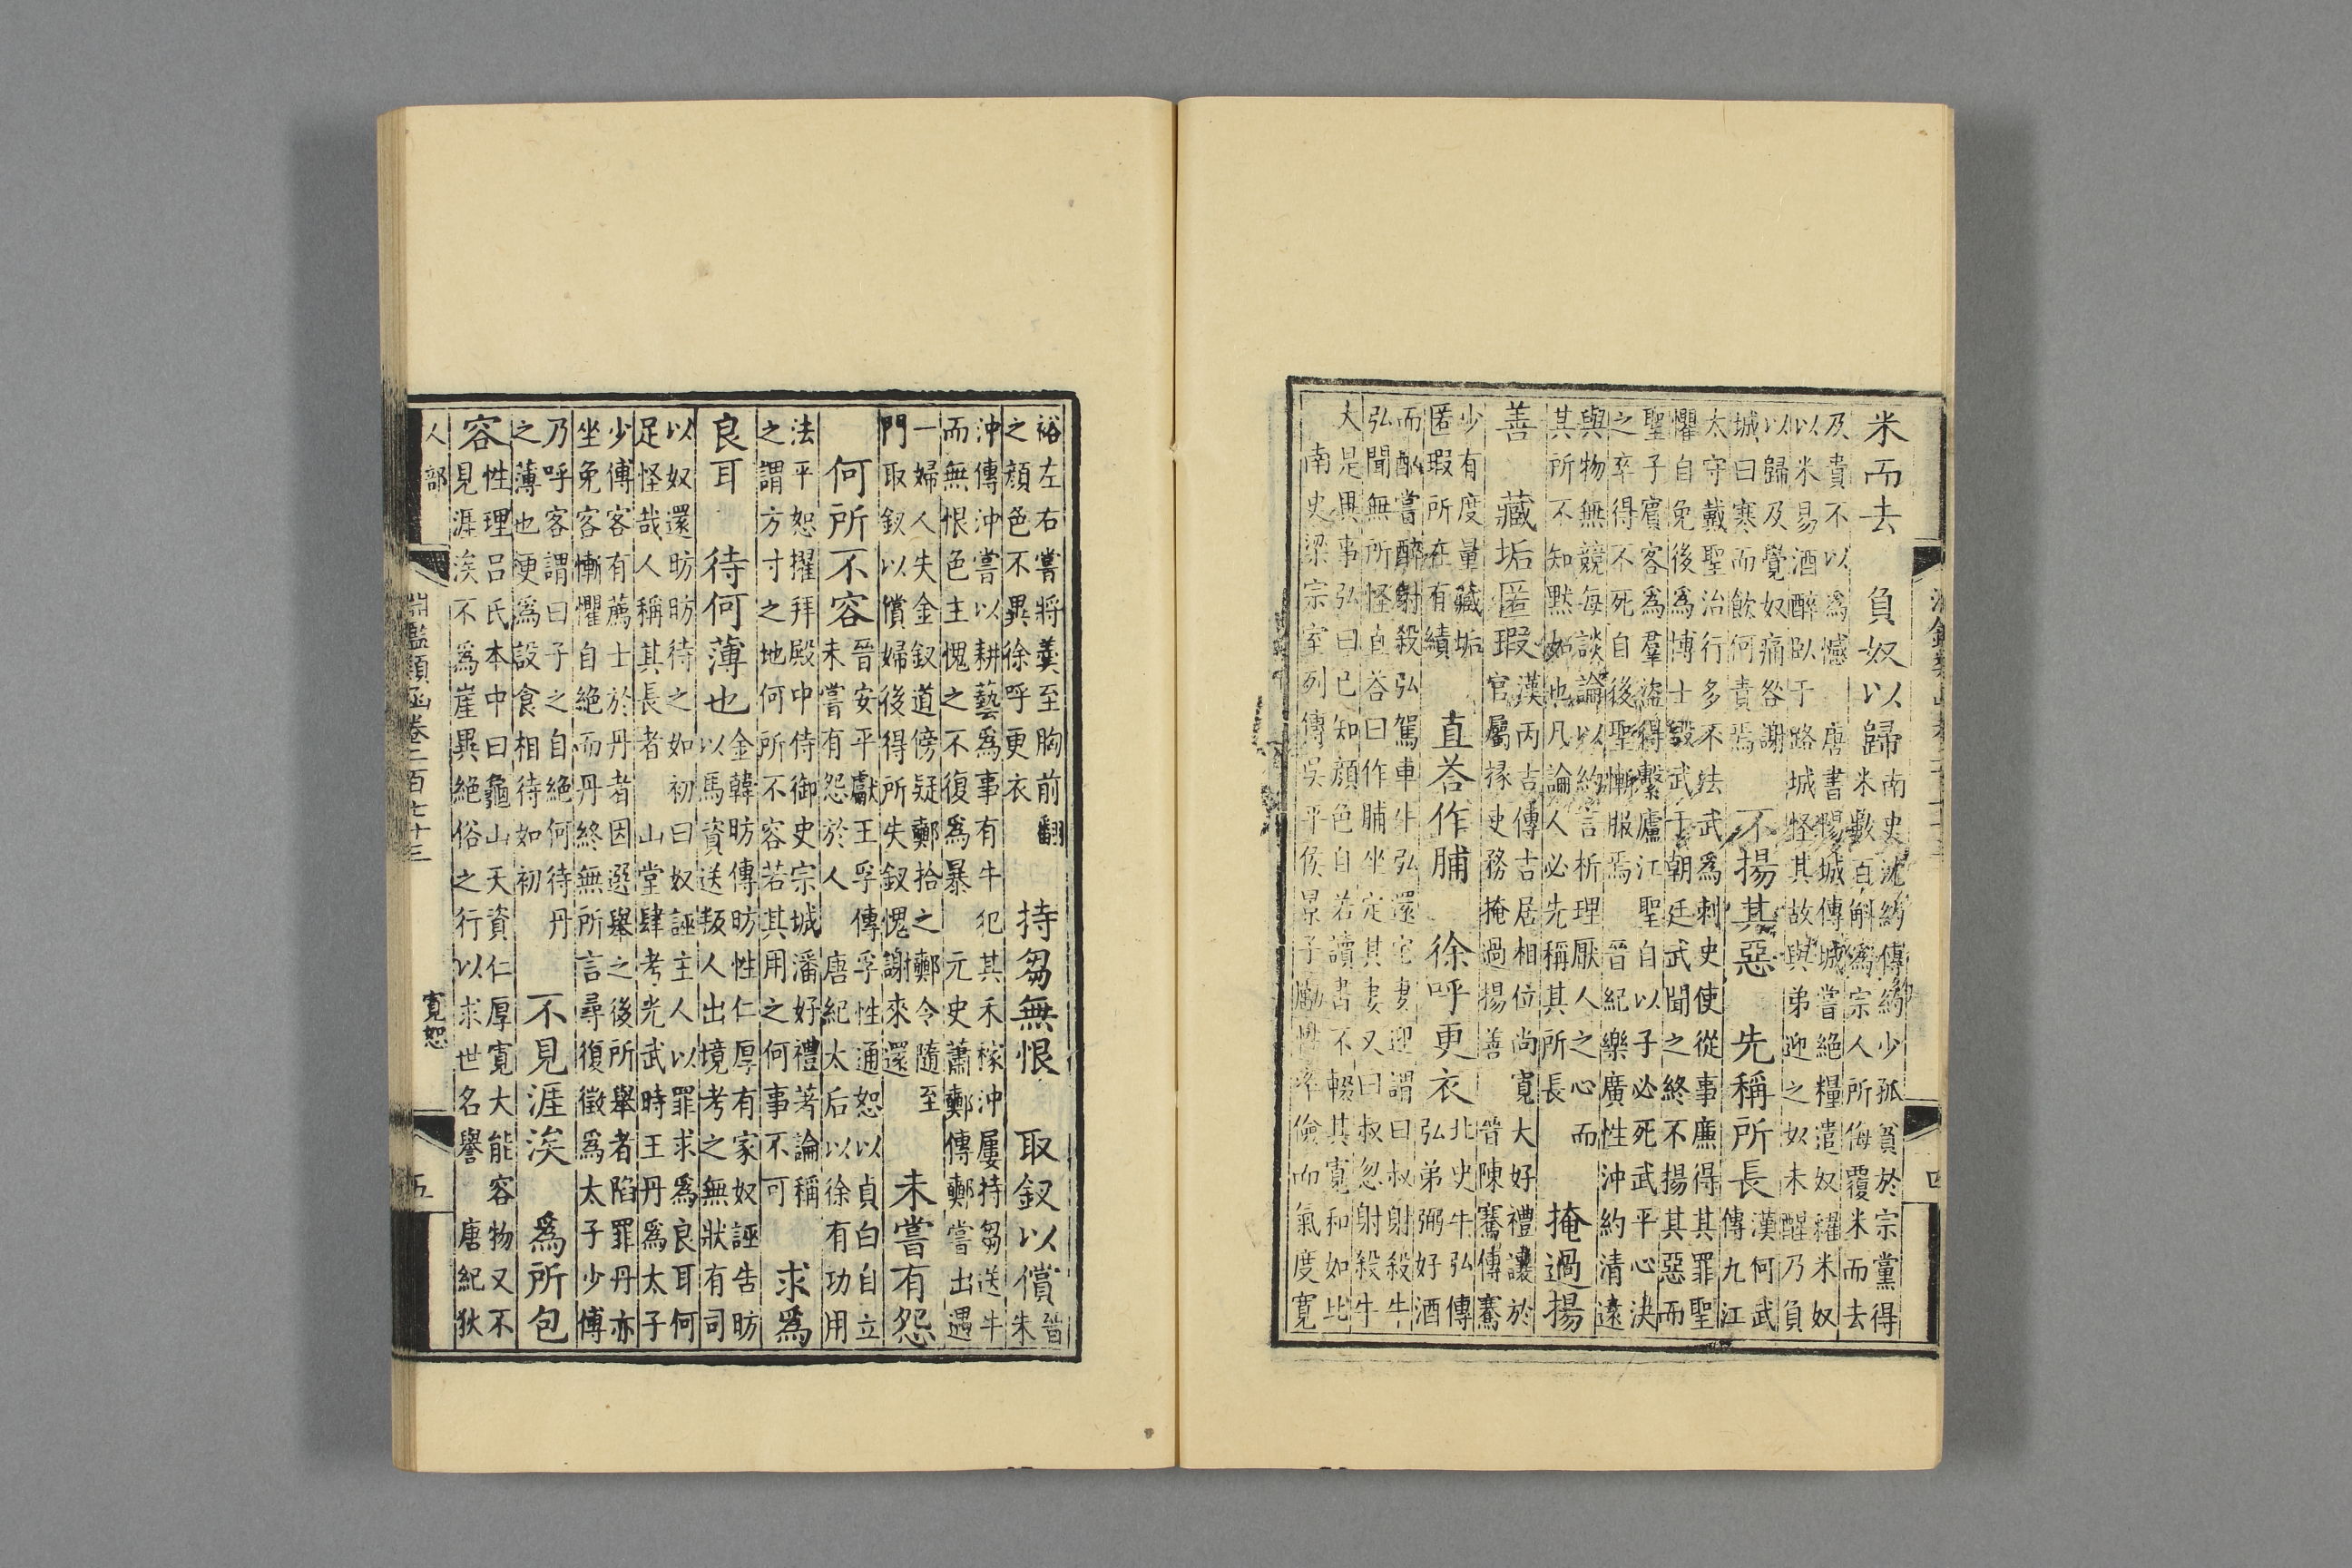 米而去　負奴以歸
南史沈約傳約少孤貧於宗黨得
米數百斛爲宗人所侮覆米而去
及貴不以爲憾　唐書陽城傳城嘗絕糧遣奴糴米奴
以米易酒醉臥于路城怪其故與弟迎之奴未醒乃負
以歸及覺奴痛咎謝
城曰寒而飲何責焉
不揚其惡　先稱所長
漢何武
傳九江
太守戴聖治行多不法武爲刺史使從事廉得其罪聖
懼自免後爲博士毀武于朝廷武聞之終不揚其惡而
聖子賓客爲羣盜得繫廬江聖自以子必死武平心決
之卒得不死自後聖慚服焉　晉紀樂廣性沖約清遠
與物無競每談論以約言析理厭人之心而
其所不知默如也凡論人必先稱其所長
掩過揚
善　藏垢匿瑕
漢丙吉傳吉居相位尚寬大好禮讓於
官屬掾史務掩過揚善　晉陳騫傳騫
少有度量藏垢
匿瑕所在有績
直荅作脯　徐呼更衣
北史牛弘傳
弘弟弼好酒
而酗嘗醉射殺弘駕車牛弘還宅妻迎謂曰叔射殺牛
弘聞無所怪直荅曰作脯坐定其妻又曰叔忽射殺牛
大是異事弘曰已知顔色自若讀書不輟其寬和如此
南史梁宗室列傳吳平侯景子勵性率儉而氣度寬
四
裕左右嘗將羹至胸前翻
之顔色不異徐呼更衣
持芻無恨　取釵以償
晉
朱
沖傳沖嘗以耕藝爲事有牛犯其禾稼沖屢持芻送牛
而無恨色主愧之不復爲暴　元史蕭㪺傳㪺嘗出遇
一婦人失金釵道傍疑㪺拾之㪺令隨至
門取釵以償婦後得所失釵愧謝來還
未嘗有怨
何所不容
晉安平獻王孚傳孚性通恕以貞白自立
未嘗有怨於人　唐紀太后以徐有功用
法平恕擢拜殿中侍御史宗城潘好禮著論稱
之謂方寸之地何所不容若其用之何事不可
求爲
良耳　待何薄也
金韓昉傳昉性仁厚有家奴誣告昉
以馬資送叛人出境考之無狀有司
以奴還昉昉待之如初曰奴誣主人以罪求爲良耳何
足怪哉人稱其長者　山堂肆考光武時王丹爲太子
少傅客有薦士於丹者因選舉之後所舉者陷罪丹亦
坐免客慚懼自絕而丹終無所言尋復徵爲太子少傅
乃呼客謂曰子之自絕何待丹
之薄也便爲設食相待如初
不見涯涘　爲所包
容
性理呂氏本中曰龜山天資仁厚寬大能容物又不
見涯涘不爲崖異絕俗之行以求世名譽　唐紀狄
人部
淵鑑類函卷二百七十三
寬恕
五